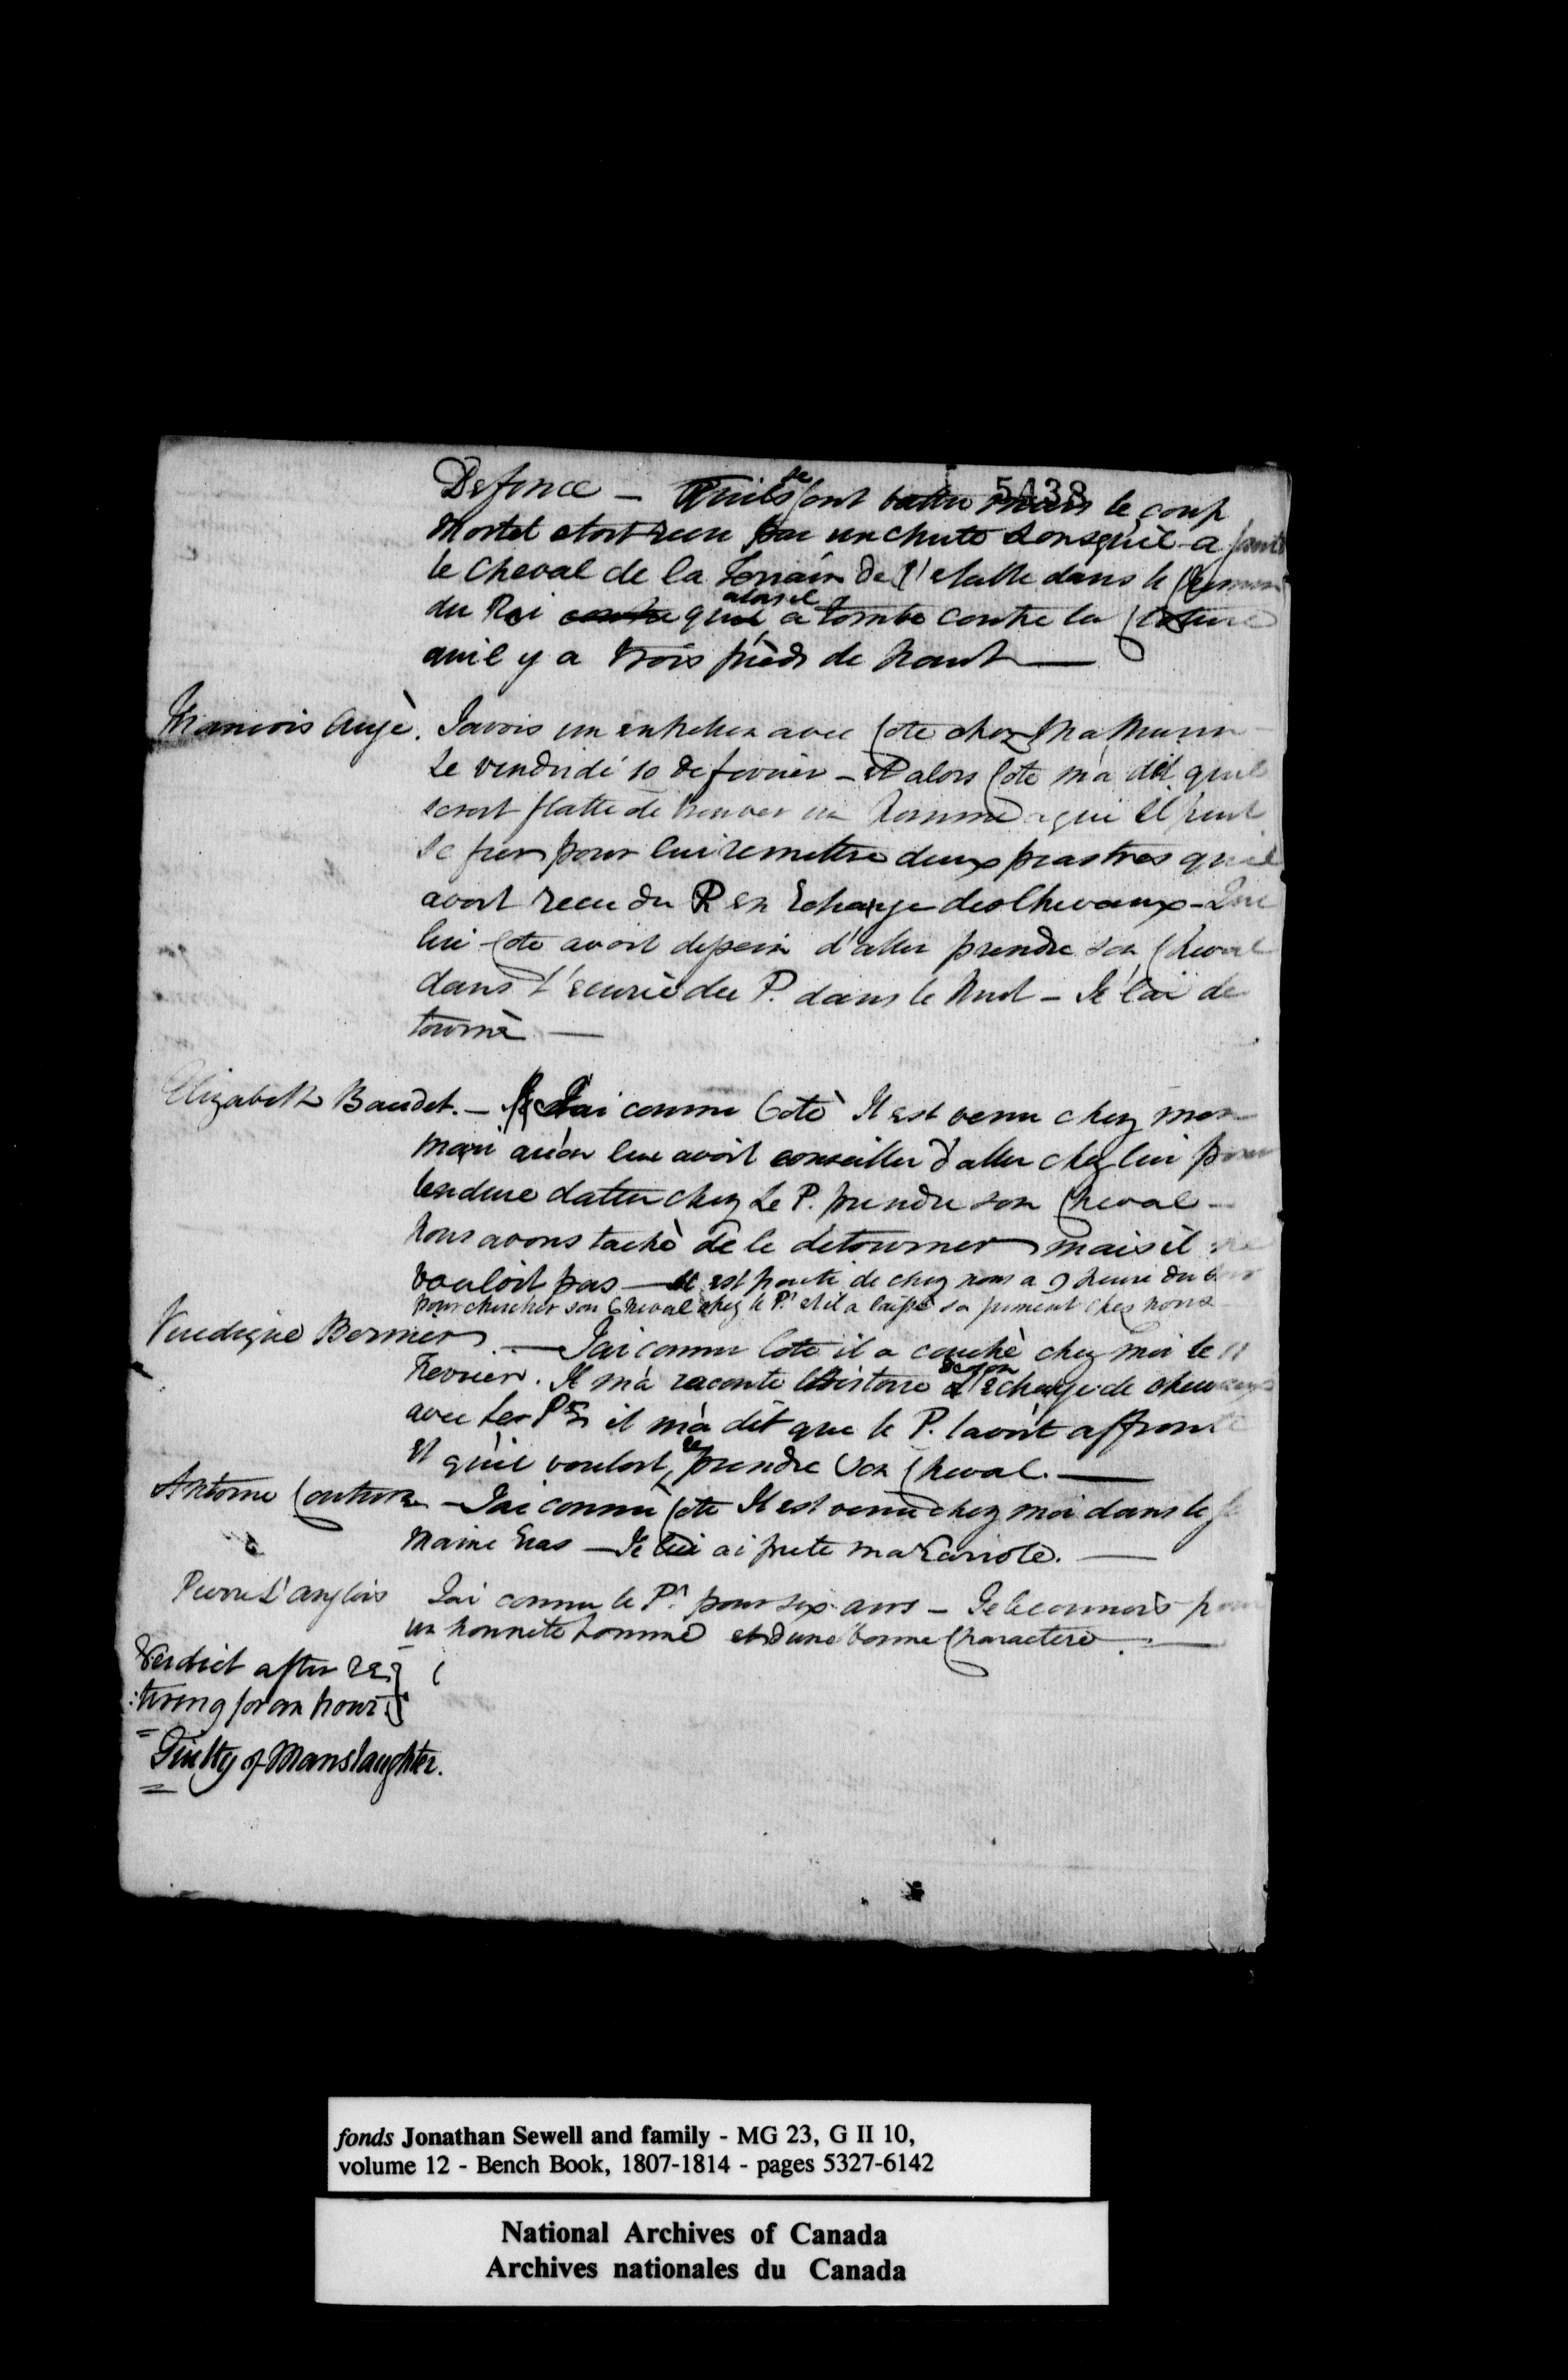 5438
Defence — Quils se sont battu mais le coup
Mortel etoit recu par un chute Lorsquil a saute
le Cheval de la Terrain de l'etable dans le Chemin
du Roi quil alors il a tombe contre la Cloture
quil y a trois pièds de haut —
Francois Augé. Javois un entretien avec Cote chez
Le vendredi 10 de fevrier — Et alors Cote m'a dit quil
seroit flatte de trouver un homme a qui il peut
se fier pour lui remettre deux piastres quil
avoit recu du P. en Echange des Chevaux — Que
lui Cote avoit dessein d'aller prendre son Cheval
dans l'ecurie du P. dans le Nuit — Je l'ai de
tourné —
Elizabeth Baudet. — Jai connu Coté Il est venu chez mon
mari qu'on lui avoit conseiller d'aller chez lui pour
d'aller chez Le P. prendre son Cheval —
Nous avons taché de le détourner mais il ne
vouloit pas — il est parti de chez nous a 9 heure du soir
pour chercher son Cheval chez le Pr. et il a laissé sa jument chez nous
Bernier — Jai connu Cote il a couché chez moi le 11
Fevrier. Il m'a raconte l'histoire de son echange de chevaux
avec Le Pr. il m'a dit que le P. l'avoit affronte
Et qu'il vouloit re prendre son Cheval. —
Antoine Couture — Jai connu Cote Il est venu chez moi dans le
— Je lui ai prete ma Cariole. —
Pierre L'anglois Jai connu le Pr. pour six ans — Je le connois pour
un honnete homme et d'une bonne Charactere —
Verdict after re
:tiring for an hour.
Guilty of Manslaughter.
fonds Jonathan Sewell and family - MG 23, G II 10,
volume 12 - Bench Book, 1807-1814 - pages 5327-6142
National Archives of Canada
Archives nationales du Canada